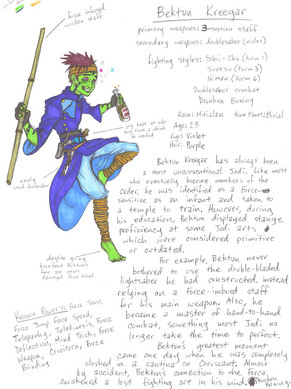 Bektun Kreegar
primary weapons: 3-section staff
secondary weapons: doublesaber (violet)
fighting styles: Shii-Cho (form 1)
Soresu (form 3)
Niman (form 6)
Doublesaber combat
Drunken Boxing
Race:
Age: 23
Eyes: Violet
Hair: Purple
force infused
wooden staff
rarely
used
despite going
barefoot Bektun's
feet are never
damaged from travel
Bektun Kreegar has always been
a most unconventional Jedi. Like most
who eventually become members of the
order, he was identified as a Force-
sensitive as an infant and taken to
a temple to train. However, during
his education, Bektun displayed strange
proficiency at some Jedi arts
which were considered primitive
or outdated.
For example, Bektun never
bothered to use the double-bladed
lightsaber he had constructed, instead
relying on a Force-imbued staff
for his main weapon. Also, he
became a master of hand-to-hand
combat, something most Jedi no
longer take the time to perfect.
Bektun's greatest moment
came one day when he was completely
sloshed in a cantina on Coruscant. Almost
by accident, Bektun's connection to the Force
awakened a lost fighting art in his mind: Drunken
Boxing
Known Powers: Force Sense,
Force Jump, Force Speed,
Telepathy, Telekinesis, Force
Deflection, Mind Trick, Force
Weapon, Force
Blinding